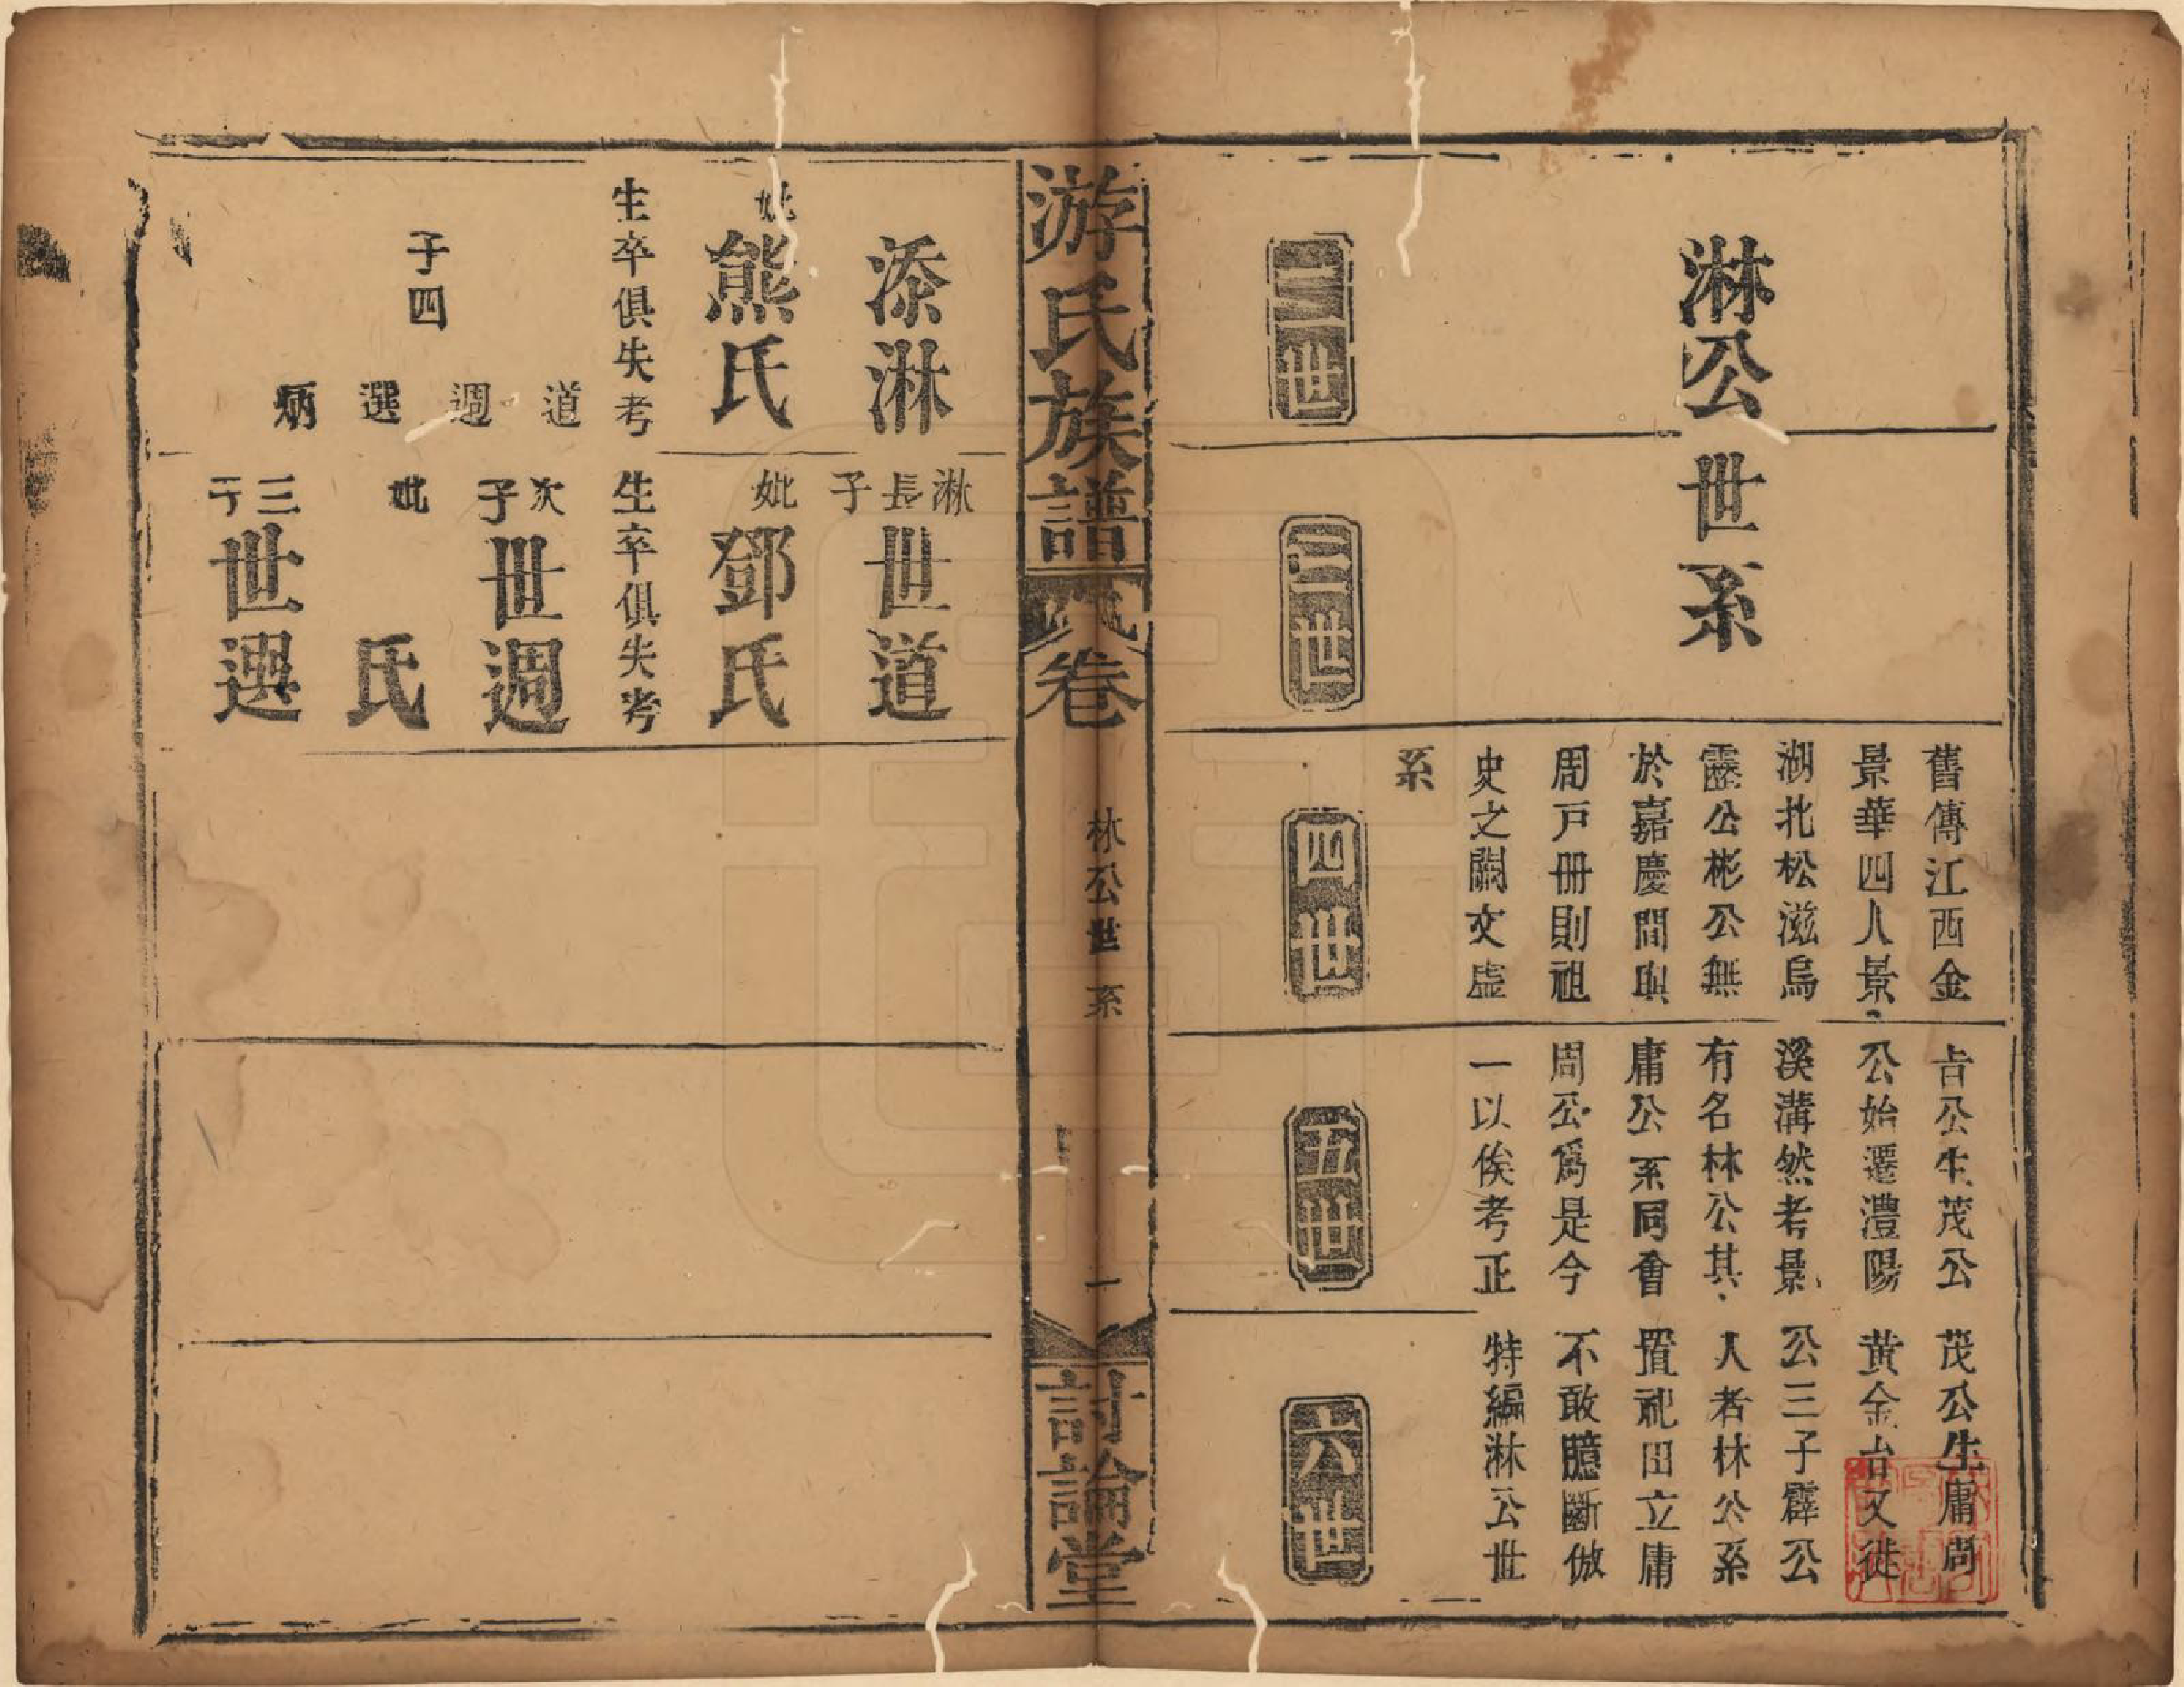 淋公世系
舊傳江西金吉公生茂公茂公生庸尚
景華四人景公始遷澧陽黃金台又徙
湖北松滋烏溪溝然考景公三子霹公
靂公彬公無有名林公其人者林公系
於嘉慶間與庸公系同會置祀田立庸
周戸冊則祖周公爲是今不敢臆斷倣
史之闕文虛一以俟考正特編淋公世
系
二世
三世
四世
五世
六世
游氏族譜
卷
林公世系
一
討論堂
添淋
妣熊氏
生卒俱失考
子四
道
週
選
炳
淋長子世道
妣鄧氏
生卒俱失考
次子世週
妣氏
三子世選